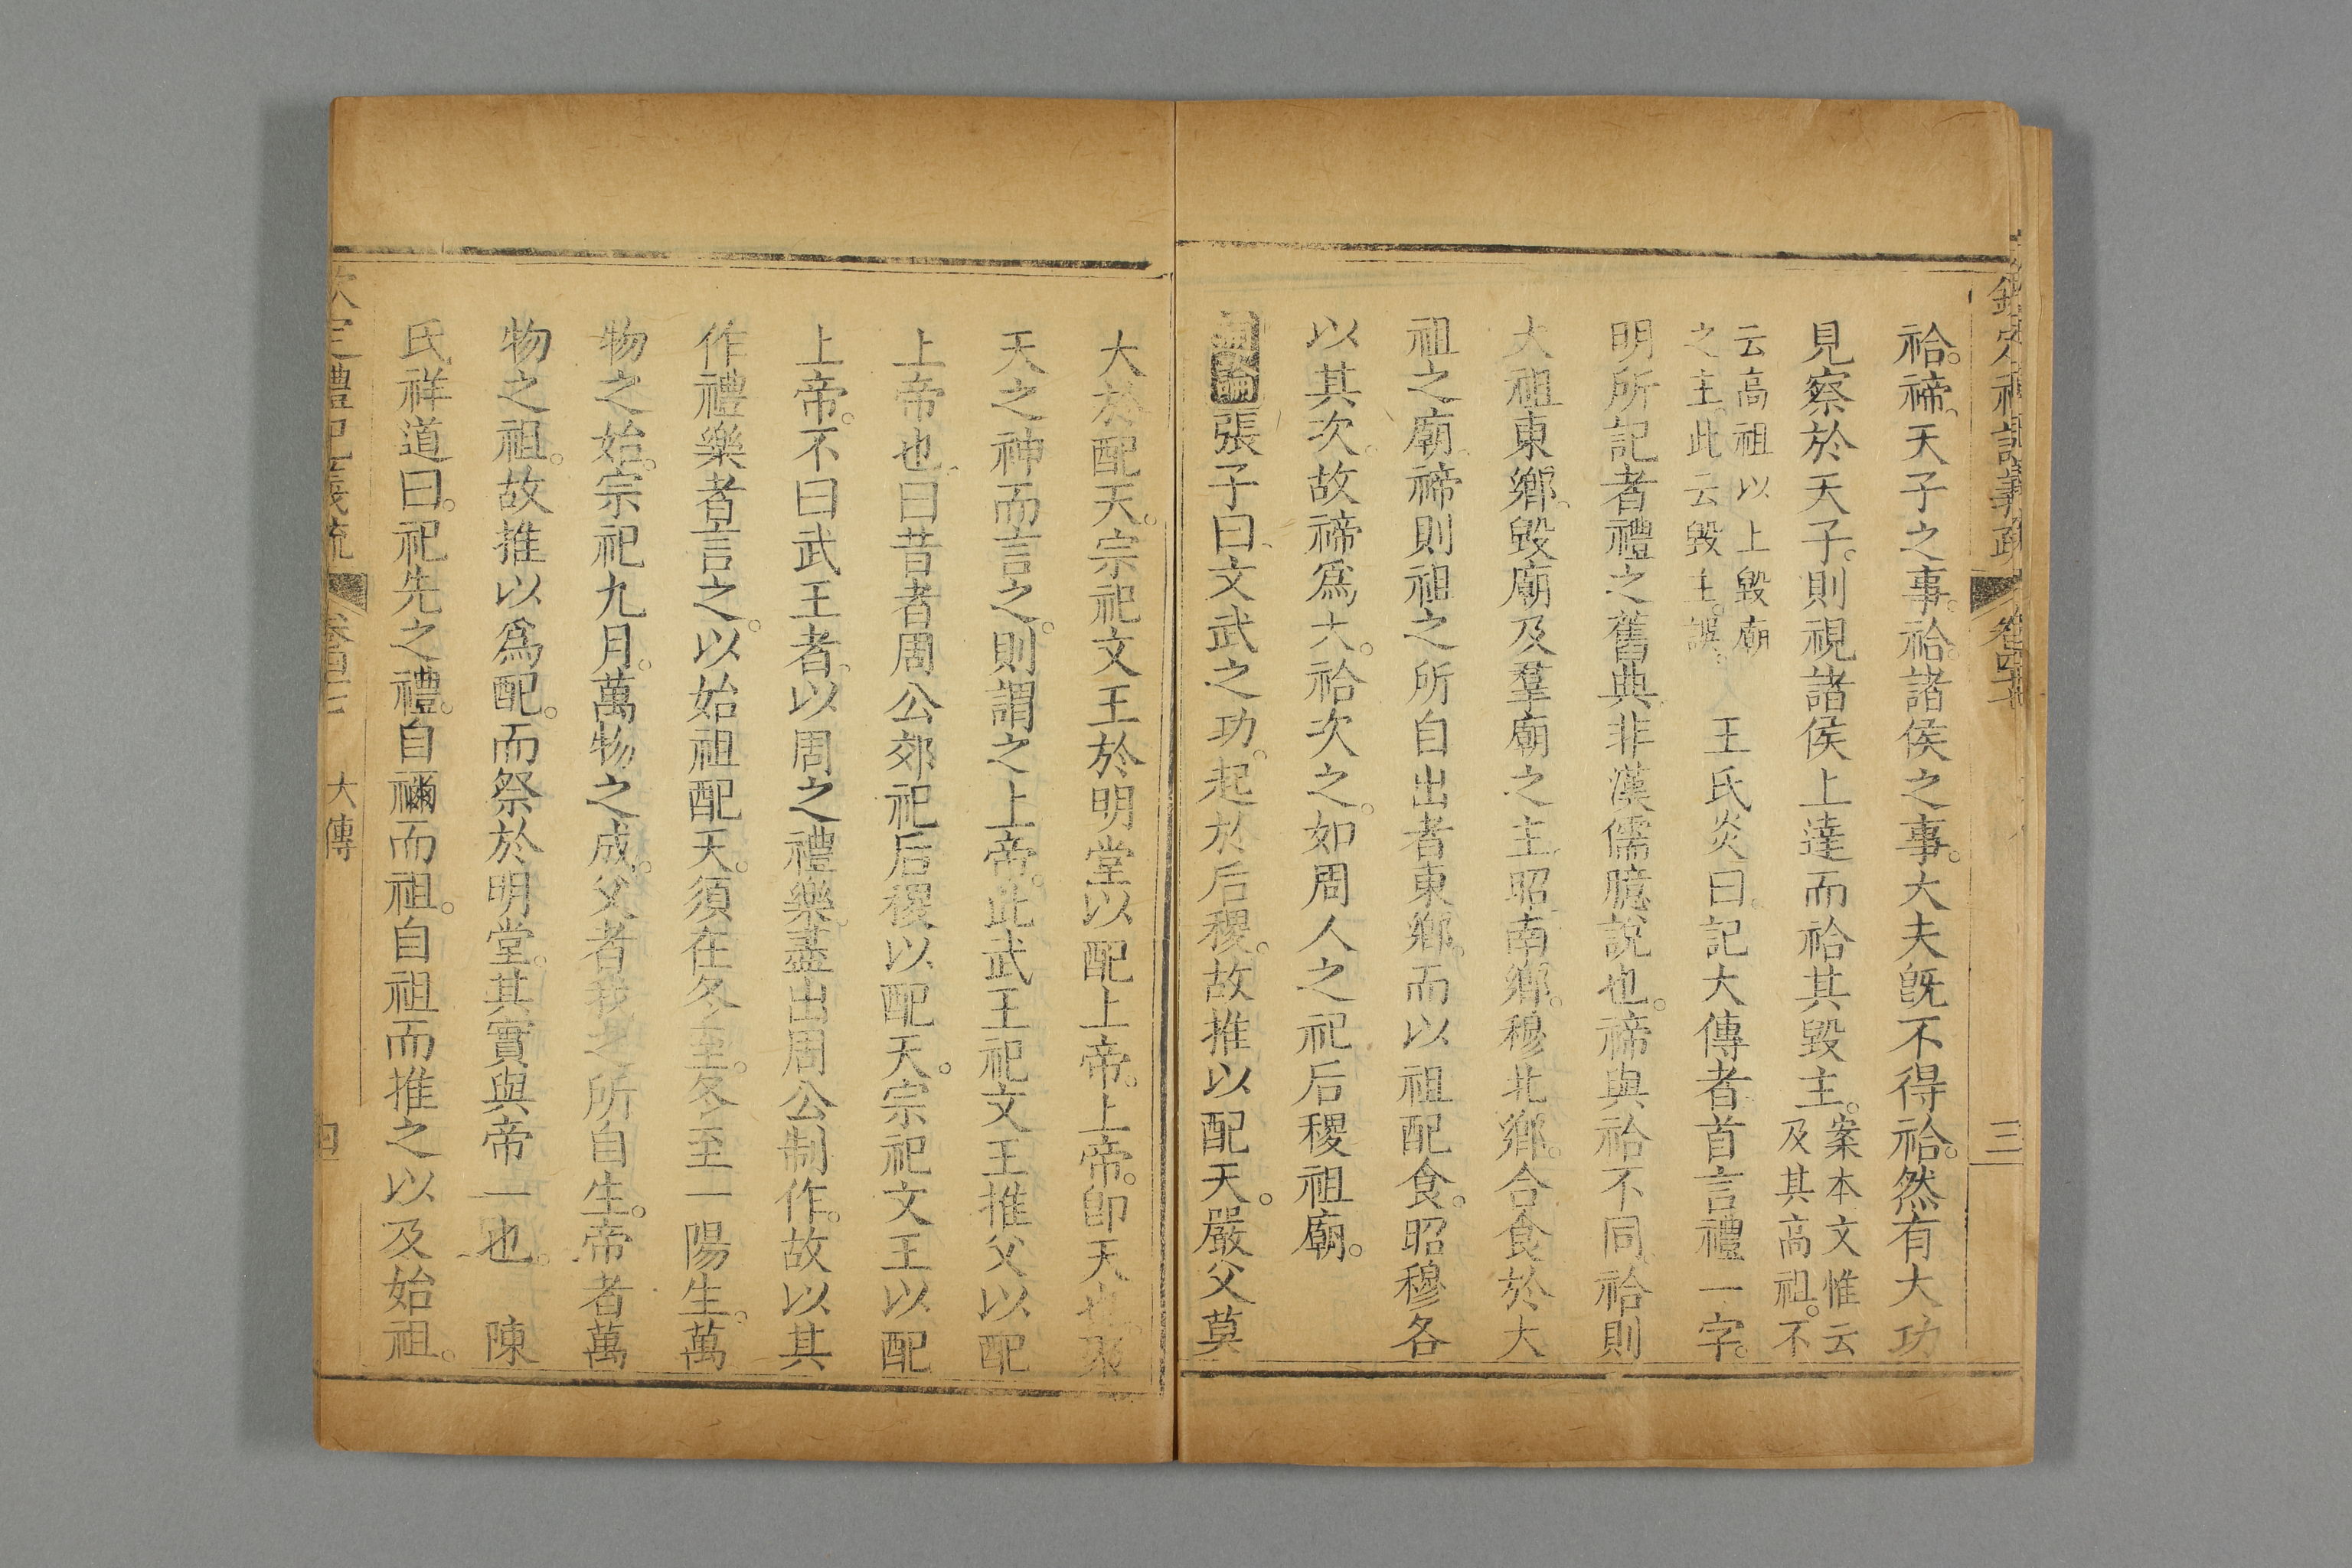 祫。禘、天子之事。祫、諸侯之事。大夫旣不得祫。然有大功
見察於天子。則視諸侯上達而祫其毀主。案本文惟云
及其高祖。不
云高祖以上毀廟
之主。此云毀主。誤。
王氏炎曰。記大傳者首言禮一字。
明所記者禮之舊典非漢儒臆說也。禘與祫不同。祫則
大祖東鄕。毀廟及羣廟之主昭南鄕。穆北鄕。合食於大
祖之廟。禘則祖之所自出者東鄕。而以祖配食。昭穆各
以其次。故禘爲大。祫次之。如周人之祀后稷祖廟。
張子曰、文武之功。起於后稷。故推以配天。嚴父莫
大於配天。宗祀文王於明堂以配上帝。上帝。卽天也。聚
天之神而言之。則謂之上帝。此武王祀文王推父以配
上帝也。曰昔者周公郊祀后稷以配天。宗祀文王以配
上帝。不曰武王者。以周之禮樂。盡出周公制作。故以其
作禮樂者言之。以始祖配天。須在冬至。冬至一陽生。萬
物之始。宗祀九月。萬物之成。父者我之所自生。帝者萬
物之祖。故推以爲配。而祭於明堂。其實與帝一也。陳
氏祥道曰。祀先之禮。自禰而祖。自祖而推之以及始祖。
大傳
三